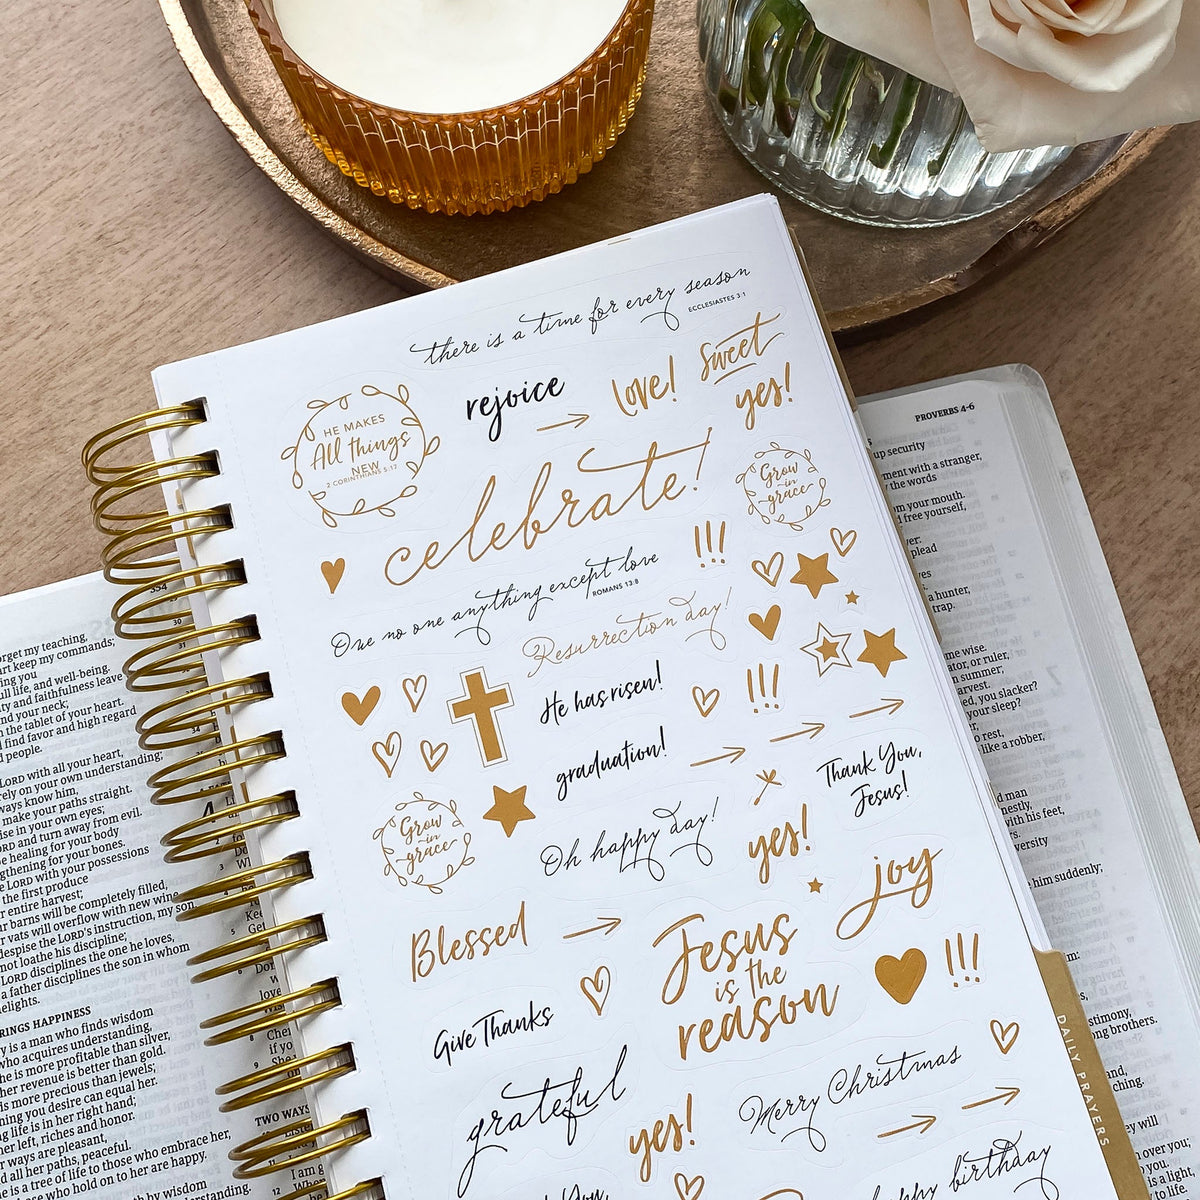 there is a time for every season
ECCLESIASTES 3:1
HE MAKES
All things
NEW
2 CORINTHIANS 5:17
rejoice
love!
sweet
yes!
celebrate!
Grow
in
grace
!!!
Owe no one anything except love
ROMANS 13:8
Resurrection day!
He has risen!
!!!
graduation!
Thank You,
Jesus!
Grow
in
grace
Oh happy day!
yes!
joy
Blessed
Jesus
is the
reason
!!!
Give Thanks
grateful
Merry Christmas
yes!
happy birthday
You,
DAILY PRAYERS
PROVERBS 4-6
up security
ment with a stranger,
the words
m your mouth.
d free yourself,
plead
yes
a hunter,
trap.
me wise.
ator, or ruler,
summer;
arvest.
ed, you slacker?
your sleep?
o rest,
like a robber,
d man
nestly,
with his feet,
versity
him suddenly;
m:
stimony,
ng brothers.
and,
ching.
ey will
over you;
is a light,
to life.
334
30
31
orget my teaching,
art keep my commands;
ng you
ull life, and well-being.
ty and faithfulness leave
nd your neck;
n the tablet of your heart.
l find favor and high regard
d people.
LORD with all your heart,
rely on your own understanding;
ways know him,
make your paths straight.
ise in your own eyes;
ORD and turn away from evil.
e healing for your body
gthening for your bones.
e LORD with your possessions
the first produce
r entire harvest;
ur barns will be completely filled,
r vats will overflow with new wine.
despise the LORD's instruction, my son,
not loathe his discipline;
LORD disciplines the one he loves,
a father disciplines the son in whom
elights.
RINGS HAPPINESS
y is a man who finds wisdom
who acquires understanding,
he is more profitable than silver,
er revenue is better than gold.
is more precious than jewels;
hing you desire can equal her.
g life is in her right hand;
er left, riches and honor.
r ways are pleasant,
d all her paths, peaceful.
e is a tree of life to those who embrace her,
ose who hold on to her are happy.
th by wisdom
understanding.
4
TWO WAYS
12
I am g
When